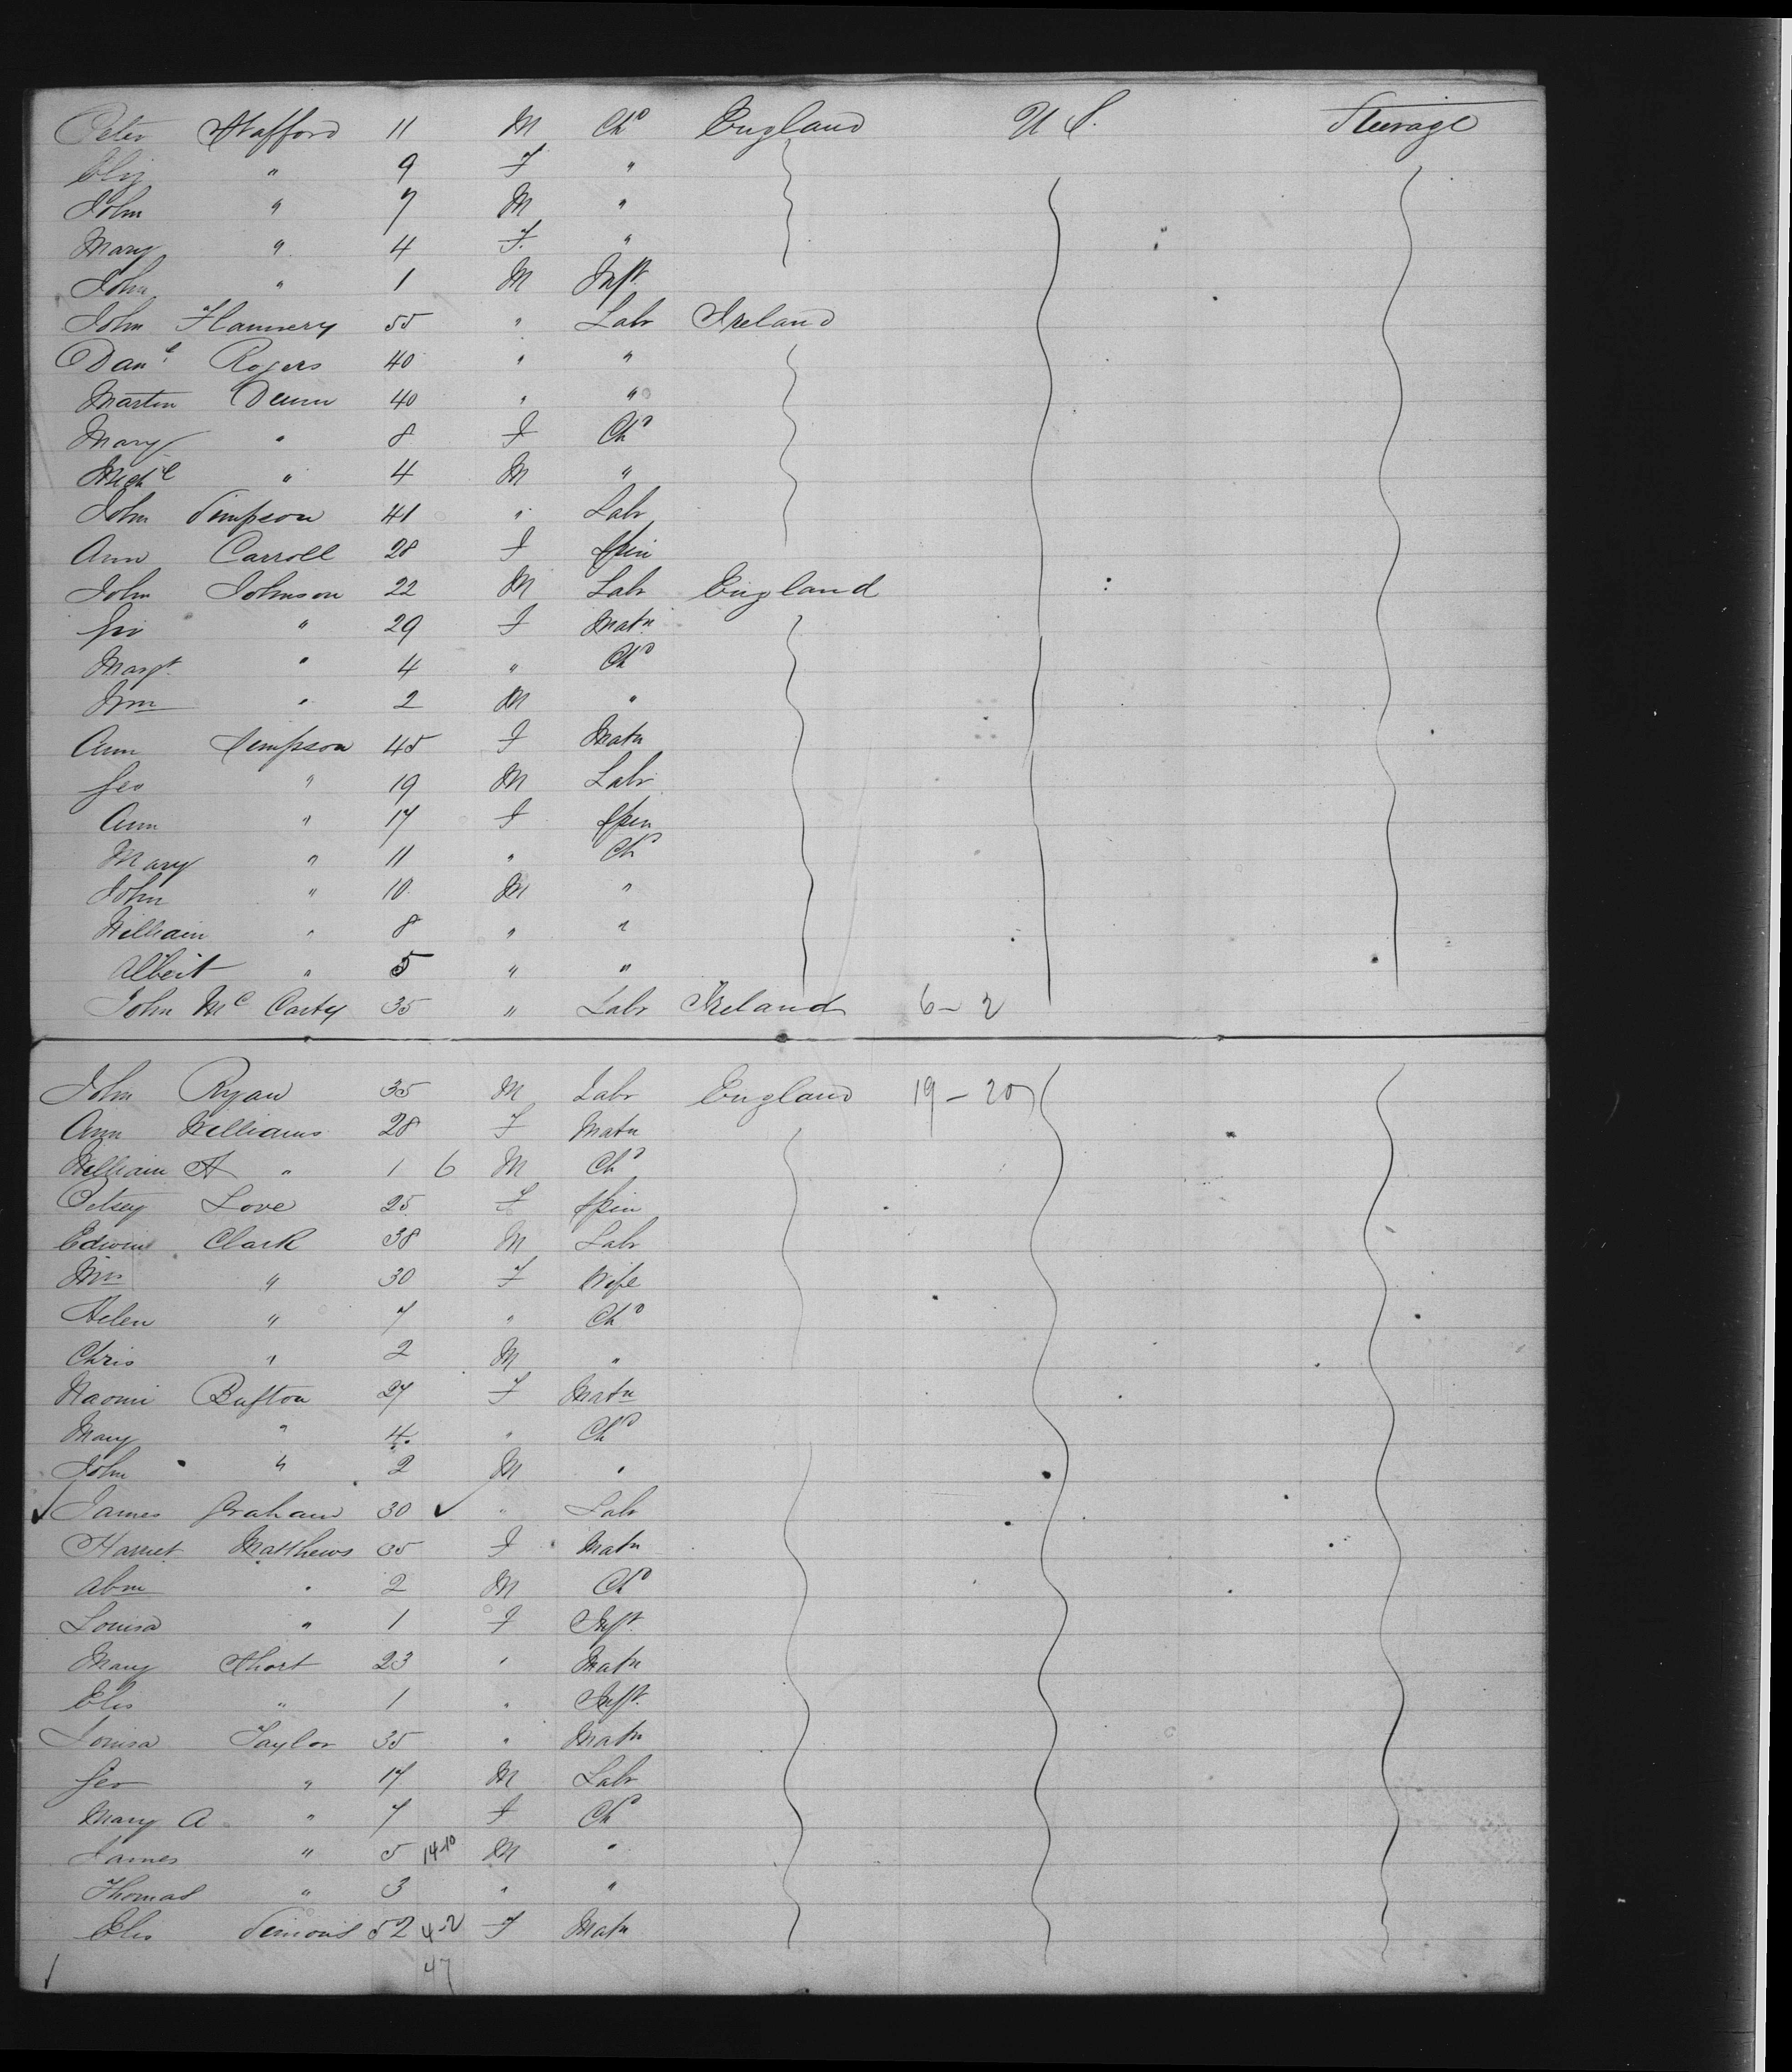 Peter Stafford 11 M Chd England U S. Steerage
Eliz " 9 F "
John " 7 M "
Mary " 4 F. "
John " 1 M Inft.
John Flannery 55 " Labr Ireland
Danl Rogers 40 " "
Martin Dunn 40 " "
Mary " 8 F Chd
Michl " 4 M "
John Simpson 41 " Labr
Ann Carroll 28 F Spin
John Johnson 22 M Labr England
" 29 F Matn
Margt. " 4 " Chd
Wm " 2 M "
Ann Simpson 45 F Matn
Geo " 19 M Labr
Ann " 17 F Spin
Mary " 11 " Chd
John " 10 M "
William " 8 " "
Albert " 5 " "
John Mc Carty 35 " Labr Ireland 6-2
John Ryan 35 M Labr England 19-20
Ann Williams 28 F Matn
William H " 1 6 M Chd
Betsey Love 25 F Spin
Edwin Clark 38 M Labr
Mrs " 30 F Wife
Helen " 7 " Chd
Chris " 2 M "
Naomi Bufton 27 F Matn
Mary " 4 " Chd
John " 2 M "
✓ James Graham 30 ✓ " Labr
Harriet Matthews 35 F Matn
Abm " 2 M Chd
Louisa " 1 F Inft.
Mary Short 23 " Matn
Elis " 1 " Inft.
Louisa Taylor 35 " Matn
Geo " 17 M Labr
Mary A " 7 F Chd
James " 5 14-10 M "
Thomas " 3 " "
Elis Simons 52 4-2 F Matn
47